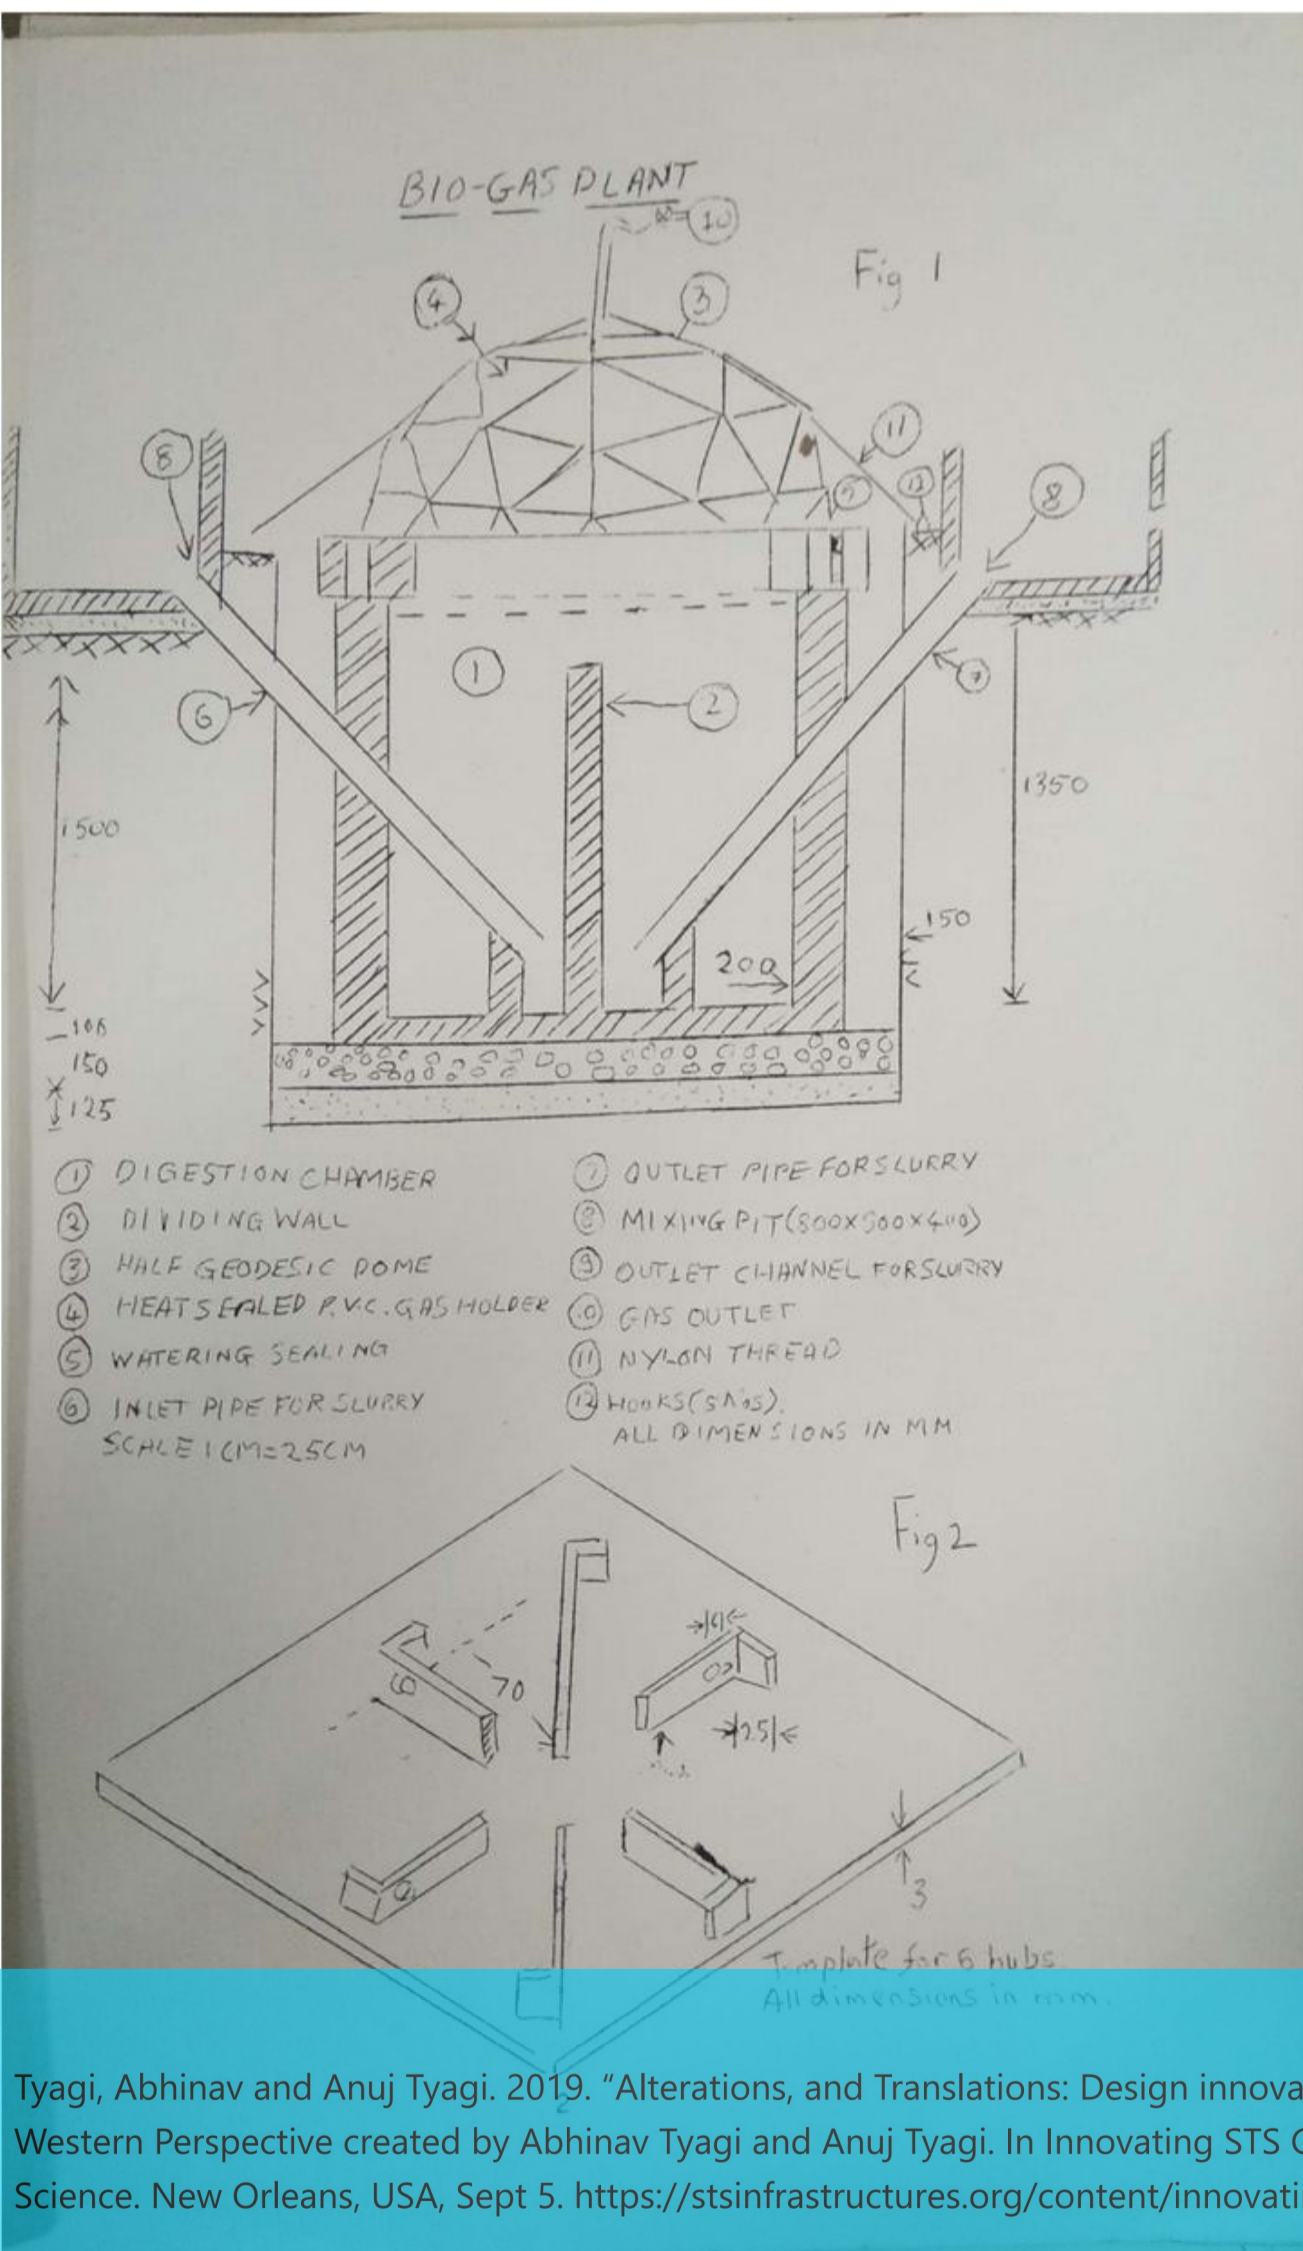 BIO-GAS PLANT
10
Fig 1
4
3
11
8
5
12
8
1
6
2
7
1500
1350
150
200
150
125
1 DIGESTION CHAMBER
2 DIVIDING WALL
3 HALF GEODESIC DOME
4 HEAT SEALED P.V.C. GAS HOLDER
5 WATERING SEALING
6 INLET PIPE FOR SLURRY
SCALE 1CM=25CM
7 OUTLET PIPE FOR SLURRY
8 MIXING PIT
9 OUTLET CHANNEL FOR SLURRY
10 GAS OUTLET
11 NYLON THREAD
12 HOOKS
ALL DIMENSIONS IN MM
Fig 2
70
25
3
Template for 6 hubs
All dimensions in mm.
2
Tyagi, Abhinav and Anuj Tyagi. 2019. “Alterations, and Translations: Design innova
Western Perspective created by Abhinav Tyagi and Anuj Tyagi. In Innovating STS
Science. New Orleans, USA, Sept 5. https://stsinfrastructures.org/content/innovati